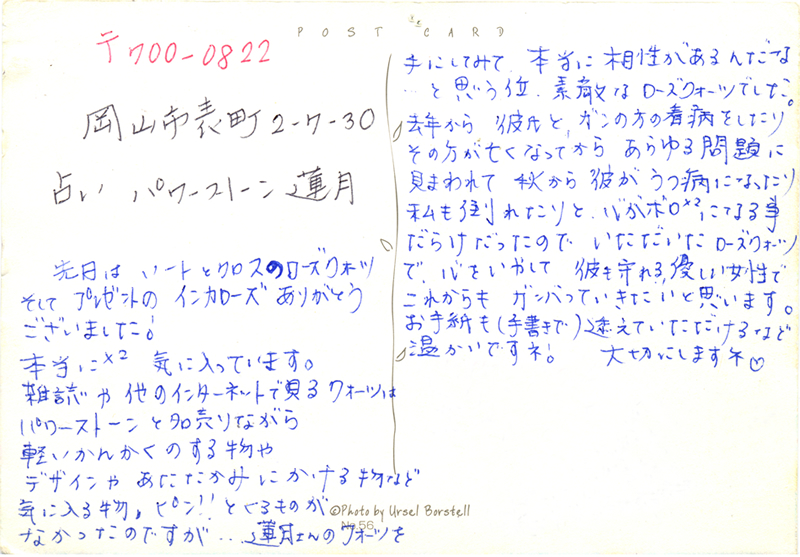 POST CARD
〒700-0822
岡山市表町2-7-30
占い パワーストーン 蓮月
先日は ハートとクロスのローズクォーツ
そして プレゼントの インカローズ ありがとう
ございました!
本当に×2 気に入っています。
雑誌や他のインターネットで見るクォーツは
パワーストーンと名売りながら
軽いかんかくのする物や
デザインや あたたかみにかける物など
気に入る物、ピン!!とくるものが
なかったのですが…蓮月さんのクォーツを
手にしてみて 本当に相性があるんだな
…と思う位、素敵なローズクォーツでした。
去年から 彼氏と、ガンの方の看病をしたり
その方が亡くなってから あらゆる問題に
見まわれて 秋から彼がうつ病になったり
私も倒れたりと、心がボロ×2になる事
だらけだったので いただいたローズクォーツ
で、心をいやして 彼も守れる、優しい女性で
これからも ガンバっていきたいと思います。
お手紙も(手書きで)添えていただけるなど
温かいですネ! 大切にしますネ♡
©Photo by Ursel Borstell
No.56